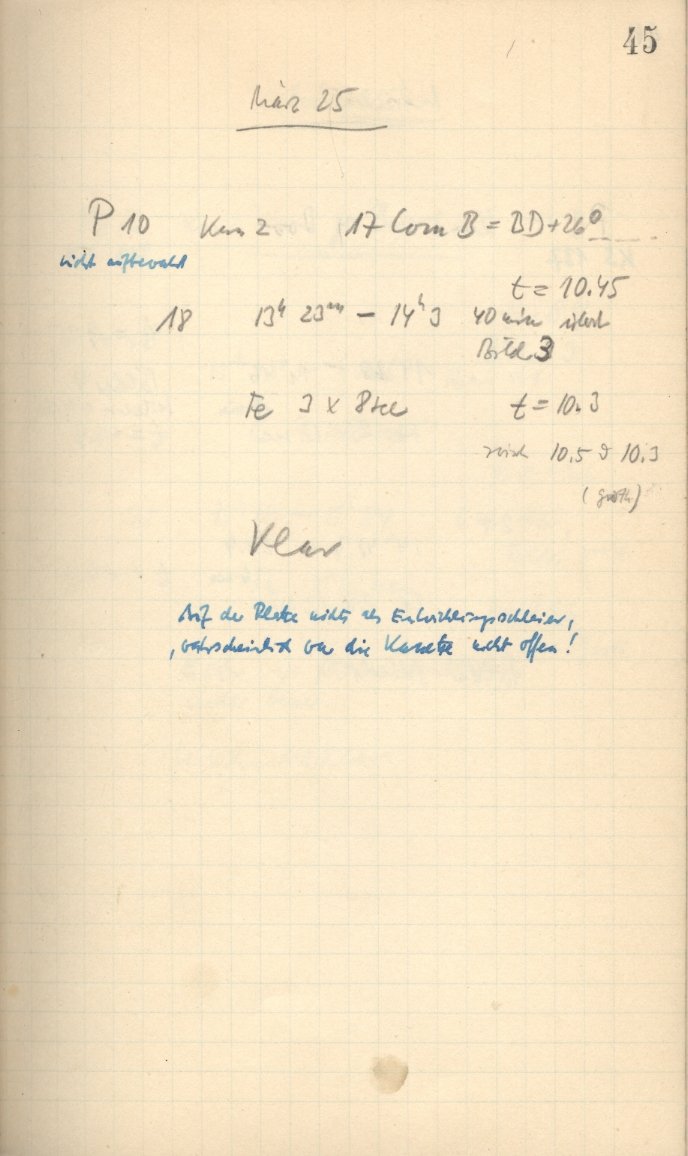 45
März 25
P 10 Kam 2 17 Com B = BD+26°
nicht aufbewahrt
t = 10.45
18 13h 23m – 14h 3 40 min
Bild 3
Fe 3 x 8 sec t = 10.3
10.5 10.3
Klar
Auf der Platte nichts als Entwicklungsschleier,
wahrscheinlich war die Kassette nicht offen!